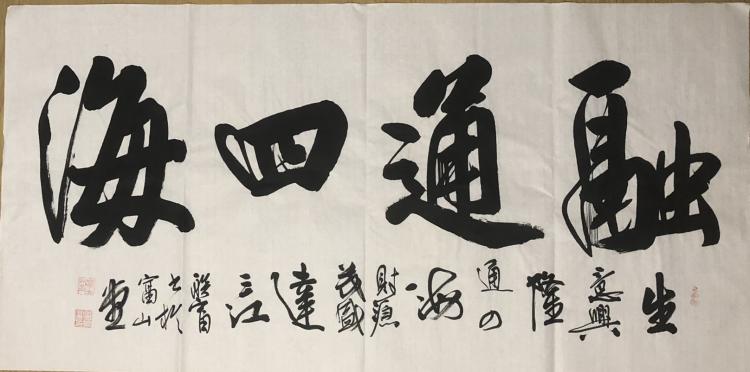 融通四海
生
意興
隆
通四
海
財源
茂盛
達
三江
富
书於
富山
堂